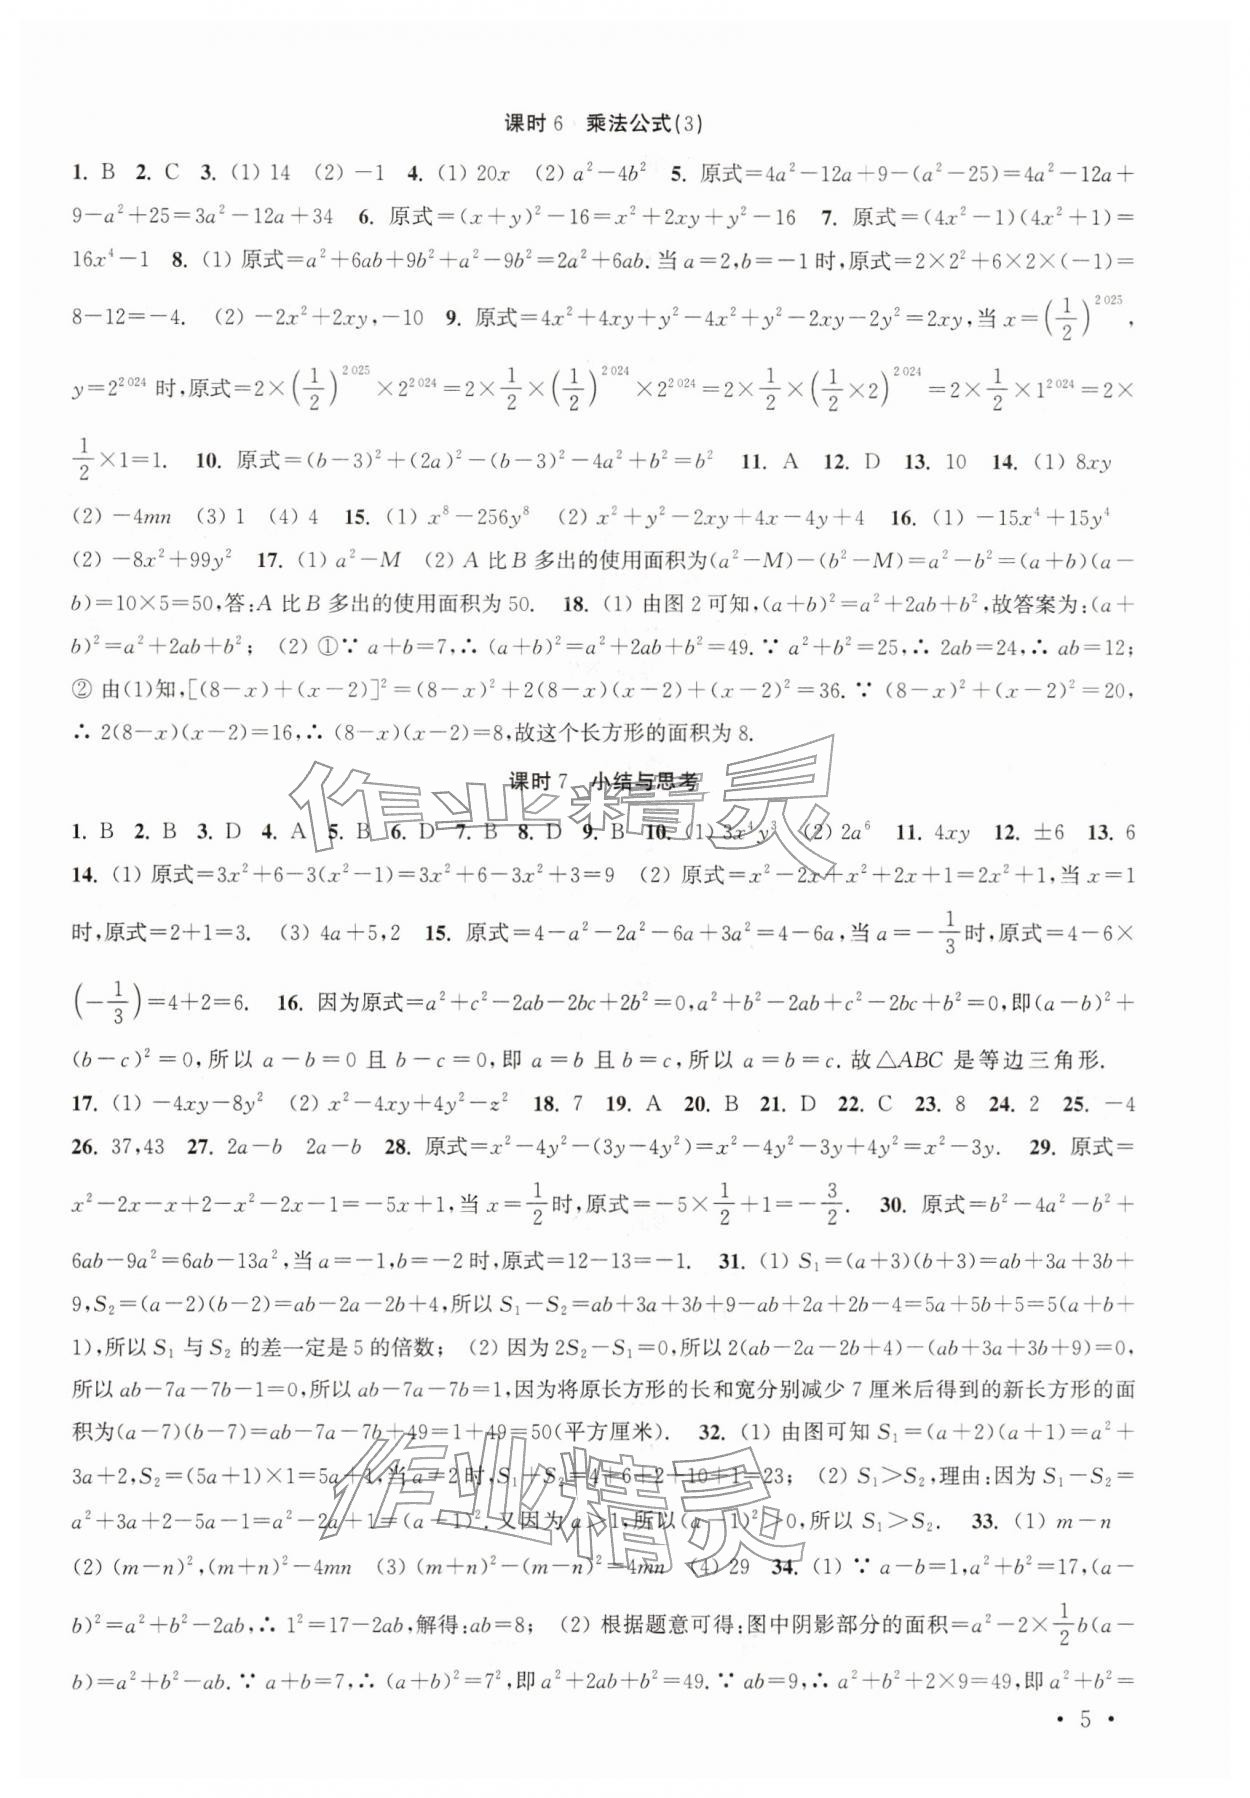 课时 6　乘法公式(3)
1. B 2. C 3. (1) 14 (2) −1 4. (1) 20x (2) a²−4b² 5. 原式=4a²−12a+9−(a²−25)=4a²−12a+
9−a²+25=3a²−12a+34 6. 原式=(x+y)²−16=x²+2xy+y²−16 7. 原式=(4x²−1)(4x²+1)=
16x⁴−1 8. (1) 原式=a²+6ab+9b²+a²−9b²=2a²+6ab.当 a=2,b=−1 时,原式=2×2²+6×2×(−1)=
8−12=−4. (2) −2x²+2xy,−10 9. 原式=4x²+4xy+y²−4x²+y²−2xy−2y²=2xy,当 x=(1/2)^2025,
y=2^2024 时,原式=2×(1/2)^2025×2^2024=2×1/2×(1/2)^2024×2^2024=2×1/2×(1/2×2)^2024=2×1/2×1^2024=2×
1/2×1=1. 10. 原式=(b−3)²+(2a)²−(b−3)²−4a²+b²=b² 11. A 12. D 13. 10 14. (1) 8xy
(2) −4mn (3) 1 (4) 4 15. (1) x⁸−256y⁸ (2) x²+y²−2xy+4x−4y+4 16. (1) −15x⁴+15y⁴
(2) −8x²+99y² 17. (1) a²−M (2) A 比 B 多出的使用面积为(a²−M)−(b²−M)=a²−b²=(a+b)(a−
b)=10×5=50,答:A 比 B 多出的使用面积为 50. 18. (1) 由图 2 可知,(a+b)²=a²+2ab+b²,故答案为:(a+
b)²=a²+2ab+b²; (2) ①∵ a+b=7,∴ (a+b)²=a²+2ab+b²=49.∵ a²+b²=25,∴ 2ab=24,∴ ab=12;
② 由(1)知,[(8−x)+(x−2)]²=(8−x)²+2(8−x)(x−2)+(x−2)²=36.∵ (8−x)²+(x−2)²=20,
∴ 2(8−x)(x−2)=16,∴ (8−x)(x−2)=8,故这个长方形的面积为 8.
课时 7　小结与思考
作业精灵
1. B 2. B 3. D 4. A 5. B 6. D 7. B 8. D 9. B 10. (1) 3x⁴y³ (2) 2a⁶ 11. 4xy 12. ±6 13. 6
14. (1) 原式=3x²+6−3(x²−1)=3x²+6−3x²+3=9 (2) 原式=x²−2x+x²+2x+1=2x²+1,当 x=1
时,原式=2+1=3. (3) 4a+5,2 15. 原式=4−a²−2a²−6a+3a²=4−6a,当 a=−1/3时,原式=4−6×
(−1/3)=4+2=6. 16. 因为原式=a²+c²−2ab−2bc+2b²=0,a²+b²−2ab+c²−2bc+b²=0,即(a−b)²+
(b−c)²=0,所以 a−b=0 且 b−c=0,即 a=b 且 b=c,所以 a=b=c.故△ABC 是等边三角形.
17. (1) −4xy−8y² (2) x²−4xy+4y²−z² 18. 7 19. A 20. B 21. D 22. C 23. 8 24. 2 25. −4
26. 37,43 27. 2a−b 2a−b 28. 原式=x²−4y²−(3y−4y²)=x²−4y²−3y+4y²=x²−3y. 29. 原式=
x²−2x−x+2−x²−2x−1=−5x+1,当 x=1/2时,原式=−5×1/2+1=−3/2. 30. 原式=b²−4a²−b²+
6ab−9a²=6ab−13a²,当 a=−1,b=−2 时,原式=12−13=−1. 31. (1) S₁=(a+3)(b+3)=ab+3a+3b+
9,S₂=(a−2)(b−2)=ab−2a−2b+4,所以 S₁−S₂=ab+3a+3b+9−ab+2a+2b−4=5a+5b+5=5(a+b+
1),所以 S₁ 与 S₂ 的差一定是 5 的倍数; (2) 因为 2S₂−S₁=0,所以 2(ab−2a−2b+4)−(ab+3a+3b+9)=0,
所以 ab−7a−7b−1=0,所以 ab−7a−7b=1,因为将原长方形的长和宽分别减少 7 厘米后得到的新长方形的面
积为(a−7)(b−7)=ab−7a−7b+49=1+49=50(平方厘米). 32. (1) 由图可知 S₁=(a+2)(a+1)=a²+
3a+2,S₂=(5a+1)×1=5a+1,当 a=2 时,S₁+S₂=4+6+2+10+1=23; (2) S₁>S₂,理由:因为 S₁−S₂=
作业精灵
a²+3a+2−5a−1=a²−2a+1=(a−1)².又因为 a>1,所以(a−1)²>0,所以 S₁>S₂. 33. (1) m−n
(2) (m−n)²,(m+n)²−4mn (3) (m+n)²−(m−n)²=4mn (4) 29 34. (1) ∵ a−b=1,a²+b²=17,(a−
b)²=a²+b²−2ab,∴ 1²=17−2ab,解得:ab=8; (2) 根据题意可得:图中阴影部分的面积=a²−2×1/2b(a−
b)=a²+b²−ab.∵ a+b=7,∴ (a+b)²=7²,即 a²+2ab+b²=49.∵ ab=9,∴ a²+b²+2×9=49,即 a²+b²=
• 5 •